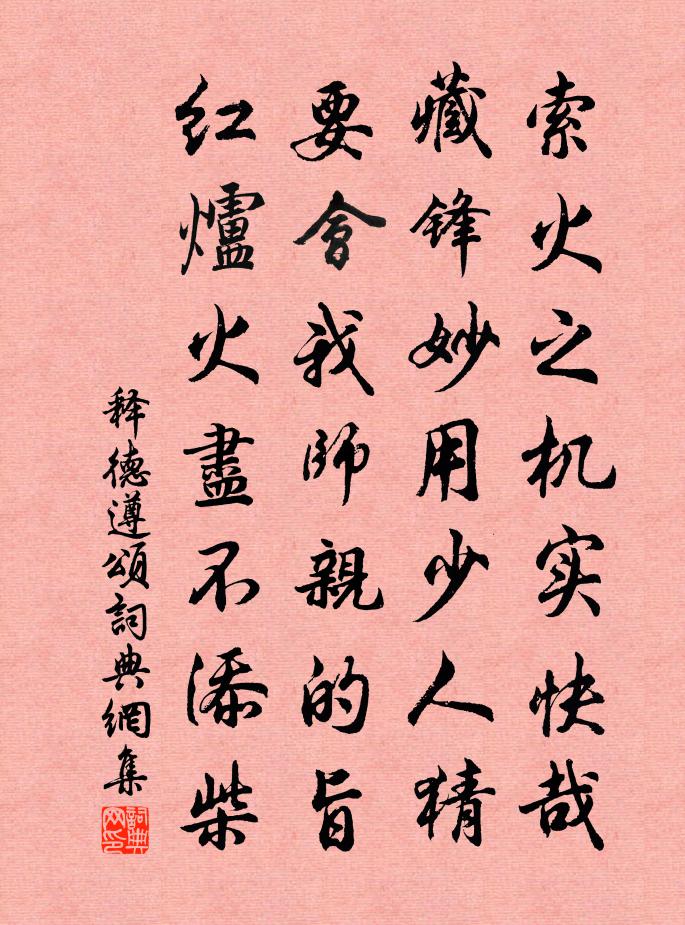 索火之机实快哉
藏锋妙用少人猜
要會我師親的旨
红爐火盡不添柴
释德遵頌詞典網集
詞典网印